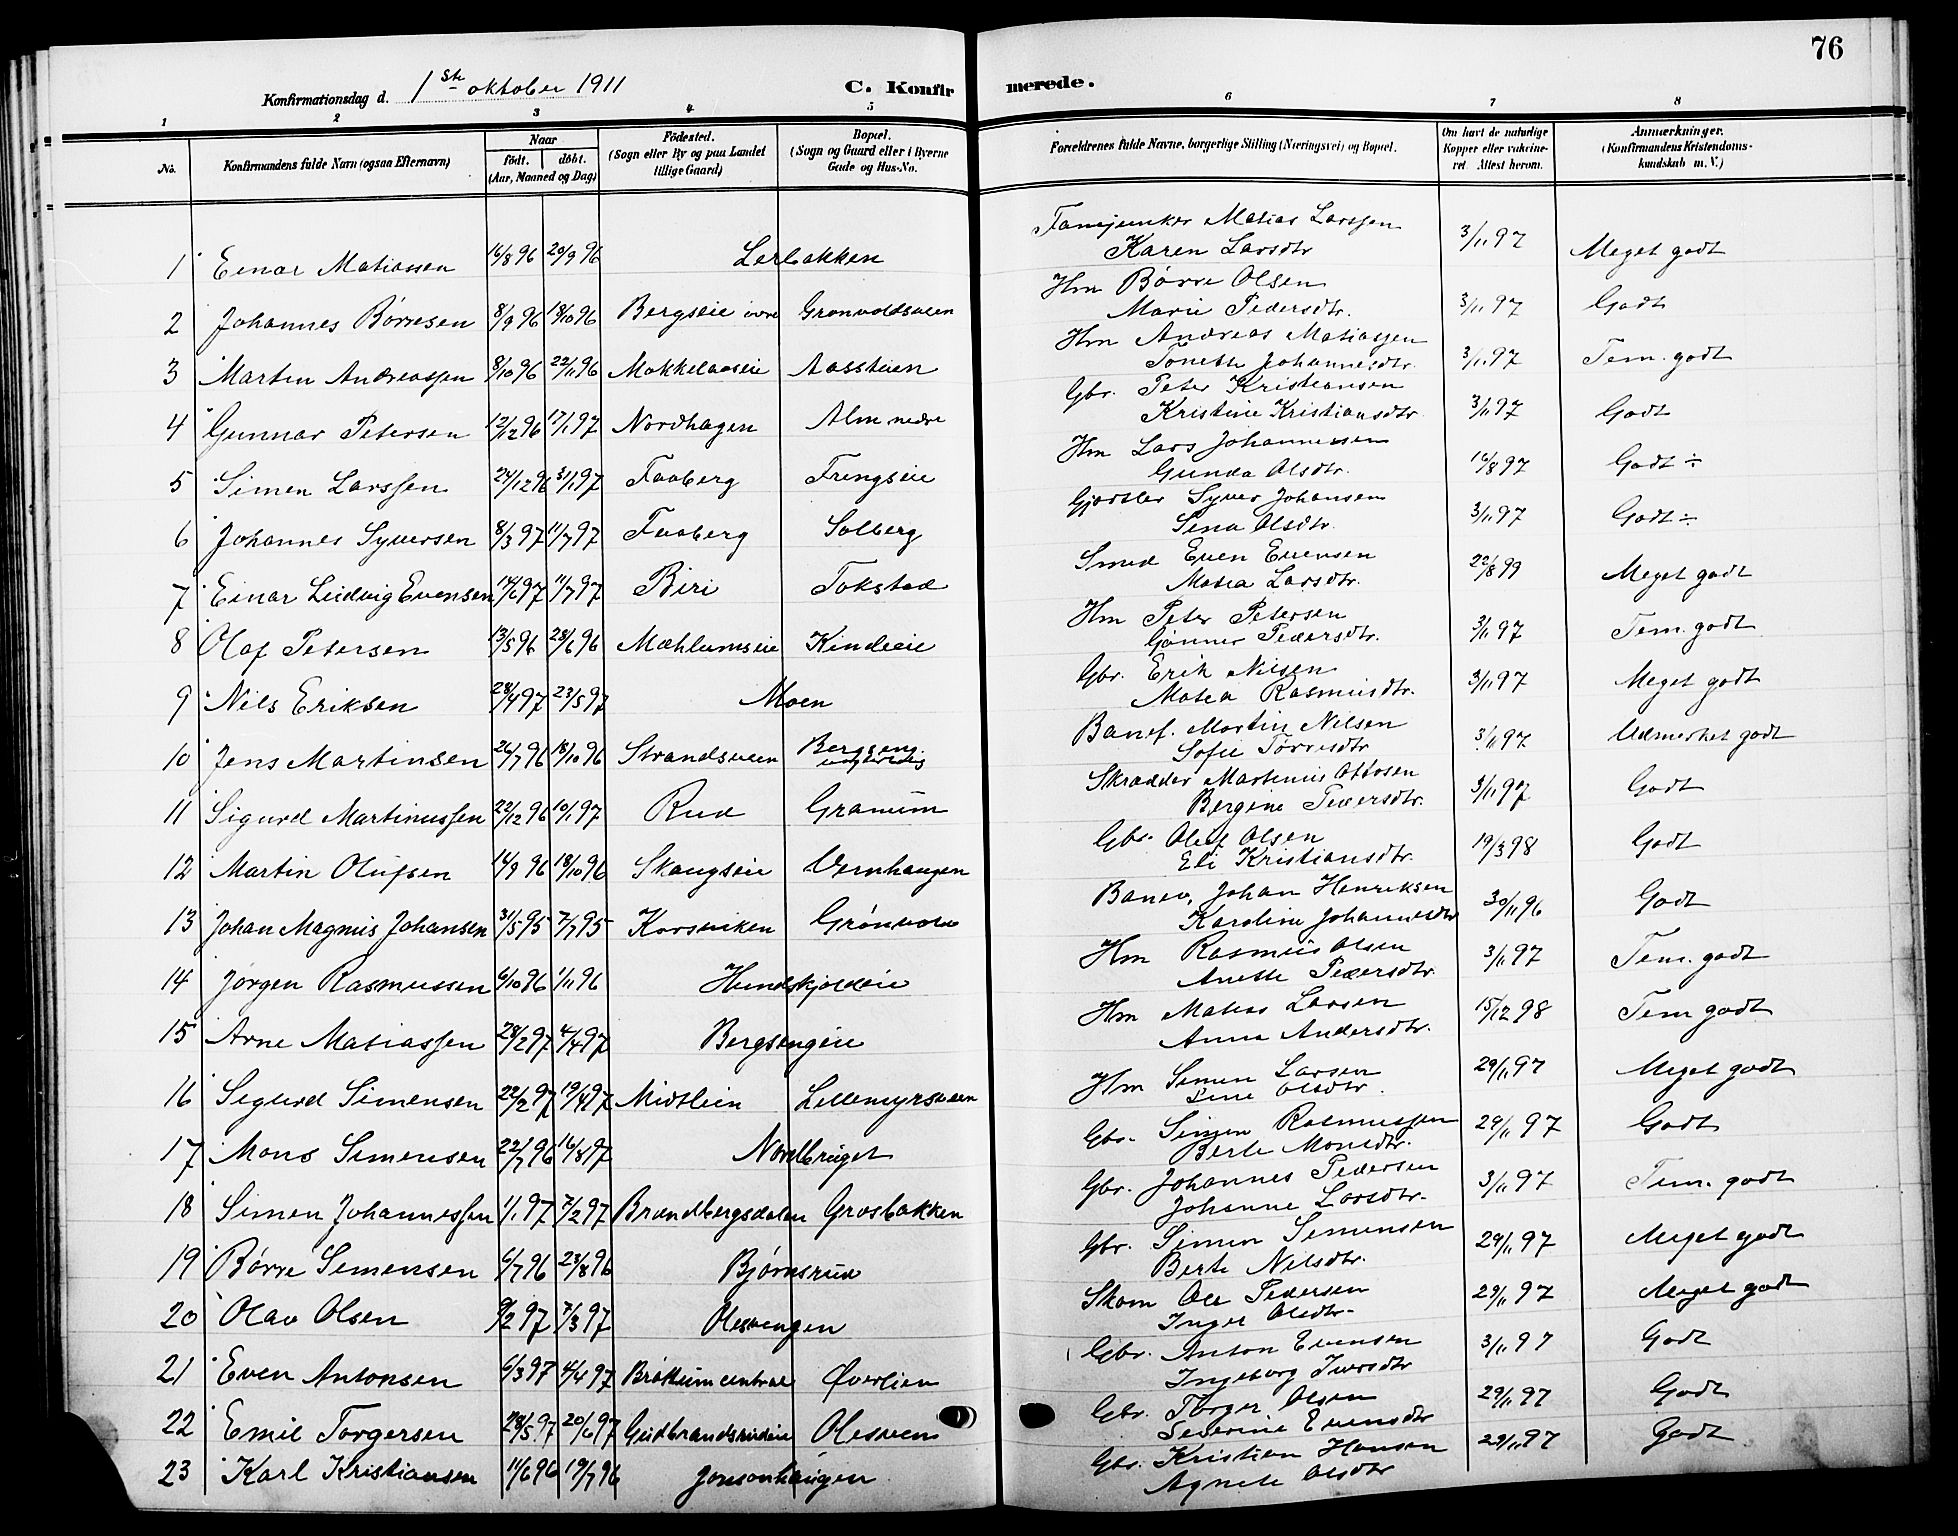 76
Konfirmationsdag d. 1ste oktober 1911 C. Konfirmerede.
1 2 3 4 5 6 7 8
No. Konfirmandens fulde Navn (ogsaa Efternavn) Naar født. døbt. (Aar, Maaned og Dag) Fødested. (Sogn eller By og paa Landet tillige Gaard) Bopæl. (Sogn og Gaard eller i Byerne Gade og Hus-No. Forældrenes fulde Navne, borgerlige Stilling (Næringsvei) og Bopæl. Om havt de naturlige Kopper eller vakcineret. Attest herom. Anmærkninger. (Konfirmandens Kristendomskundskab m. V.)
1 Einar Matiassen 16/8 96 20/9 96 Lerbakken Fanejunker Matias Larssen 3/11 97 Meget godt
Karen Larsdtr
2 Johannes Børresen 8/9 96 18/10 96 Bergseie øvre Grønvoldsveen Hm Børre Olsen 3/11 97 Godt
Marie Pedersdtr.
3 Martin Andreassen 8/10 96 22/11 96 Mokkelaaseie Aassteien Hm Andreas Matiassen 3/11 97 Tem. godt
Tonette Johannesdtr.
4 Gunnar Petersen 12/12 96 17/1 97 Nordhagen Alm nedre Gbr. Peter Kristiansen 3/11 97 Godt
Kristine Kristiansdtr.
5 Simen Larssen 24/12 96 31/1 97 Faaberg Frengseie Hm Lars Johannessen 16/8 97 Godt ÷
Gunda Olsdtr.
6 Johannes Syversen 8/3 97 11/7 97 Faaberg Solberg Gjørtler Syver Johansen 3/11 97 Godt ÷
Sina Olsdtr.
7 Einar Ludvig Evensen 14/6 97 11/7 97 Biri Tokstad Smed Even Evensen 22/8 99 Meget godt
Matea Larsdtr.
8 Olaf Petersen 13/5 96 28/6 96 Mæhlumseie Kindeeie Hm Peter Petersen 3/11 97 Tem. godt
Gønner Pedersdtr.
9 Nils Eriksen 28/4 97 23/5 97 Moen Gbr. Erik Nilsen 3/11 97 Meget godt
Matea Rasmusdtr.
10 Jens Martinsen 26/7 96 18/10 96 Strandsveen Bergseng Banef. Martin Nilsen 3/11 97 Udmerket godt
Sofie Torresdtr
11 Sigurd Martinussen 22/12 96 10/1 97 Rud Granum Skrædder Martinus Ottosen 3/11 97 Godt
Bergine Pedersdtr.
12 Martin Olufsen 14/9 96 18/10 96 Skaugseie Vernhaugen Gbr. Oluf Olsen 19/3 98 Godt
Eli Kristiansdtr.
13 Johan Magnus Johansen 31/5 95 7/7 95 Korsviken Grønvold Banev. Johan Henriksen 30/11 96 Godt
Karoline Johannesdtr
14 Jørgen Rasmussen 6/10 96 1/11 96 Hundskjoldeie Hm Rasmus Olsen 3/11 97 Tem. godt
Anette Pedersdtr.
15 Arne Matiassen 28/2 97 4/4 97 Bergsengeie Hm Matias Larsen 15/12 98 Tem godt
Anna Andersdtr.
16 Sigurd Simensen 22/2 97 19/4 97 Midtlien Lillemyrsveen Hm Simen Larsen 29/11 97 Meget godt
Line Olsdtr.
17 Mons Simensen 22/7 96 16/8 97 Nordbruget Gbr. Simen Rasmussen 29/11 97 Godt
Berte Monsdtr.
18 Simen Johannessen 1/1 97 7/2 97 Brændbergsdalen Grosbakken Gbr. Johannes Pedersen 3/11 97 Tem. godt
Johanne Larsdtr.
19 Børre Simensen 6/7 96 23/8 96 Bjørnsrud Gbr. Simen Simensen 29/11 97 Meget godt
Berte Nilsdtr.
20 Olav Olsen 9/2 97 7/3 97 Olesvengen Skom Ole Pedersen 29/11 97 Meget godt
Inger Olsdtr.
21 Even Antonsen 6/3 97 4/4 97 Brøttum central Øverlien Gbr. Anton Evensen 3/11 97 Godt
Ingeborg Iversdtr
22 Emil Torgersen 28/5 97 20/6 97 Gudbrandsrudeie Olesveen Gbr. Torger Olsen 29/11 97 Godt
Severine Evensdtr
23 Karl Kristiansen 11/6 96 19/7 96 Jonsonhaugen Gbr. Kristian Hansen 29/11 97 Godt
Agnete Olsdtr